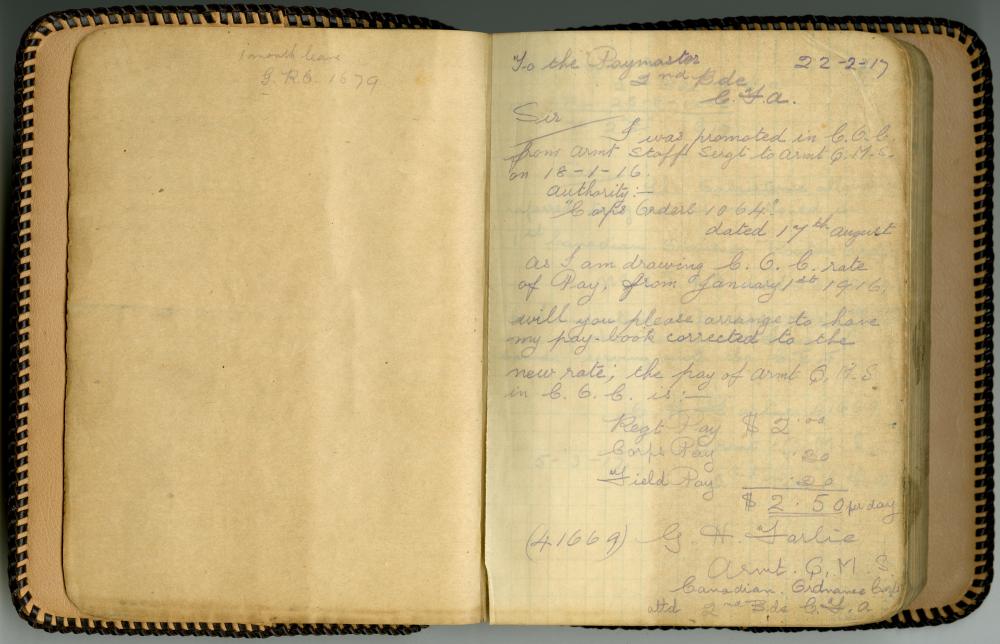 1 month leave
G.R.O. 1679
To the Paymaster 22-2-17
2nd Bde
C.F.A.
Sir
I was promoted in C.O.C.
from Armt Staff Sergt to Armt Q.M.S.
on 18-1-16.
Authority:-
"Corps Orders 1064"
dated 17th August
As I am drawing C.O.C. rate
of Pay, from January 1st 1916,
will you please arrange to have
my pay-book corrected to the
new rate; the pay of Armt Q.M.S
in C.O.C. is:-
Regt Pay $2.00
Corps Pay
Field Pay
$2.50 per day
(41669) G. H. Farlie
Armt. Q.M.S
Canadian Ordnance Corps
attd 2nd Bde C.F.A